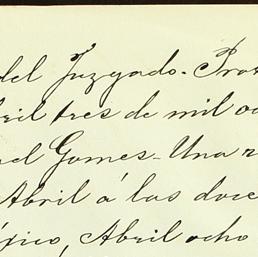 del Juzgado. Prot
bril tres de mil oc
uel Gomes. Una r
Abril á las doce
éxico, Abril ocho